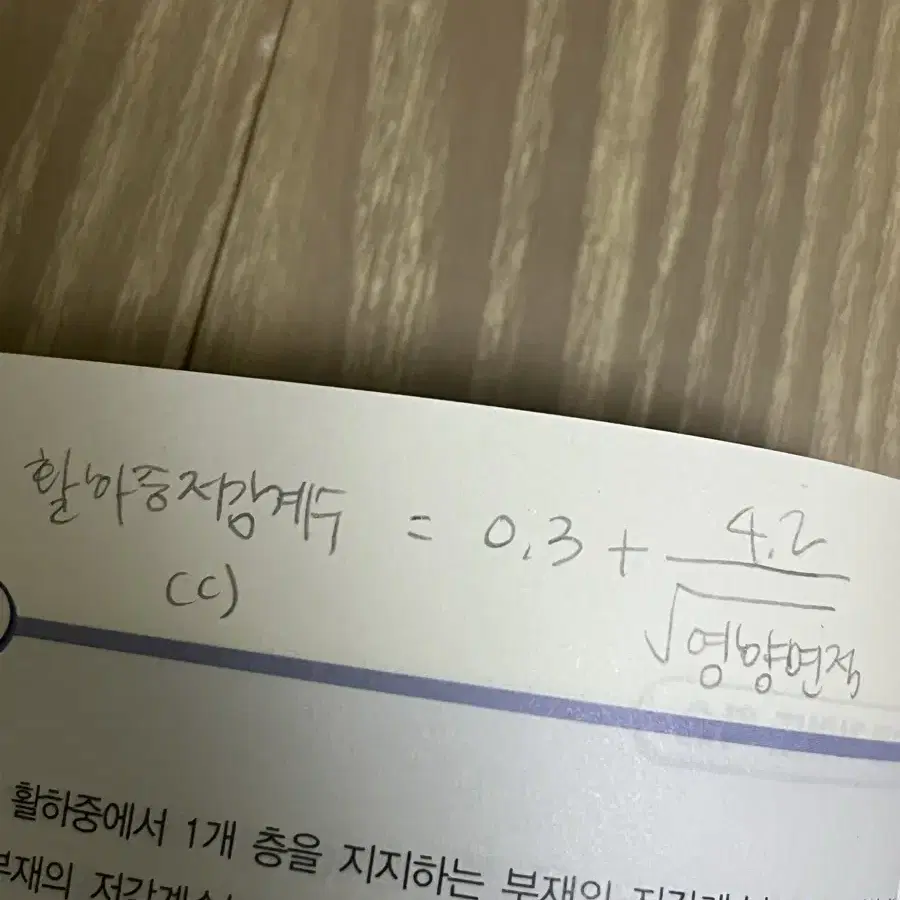 활하중저감계수 = 0.3 + 4.2
(C) √영향면적
활하중에서 1개 층을 지지하는 부재의
부재의 저감계수